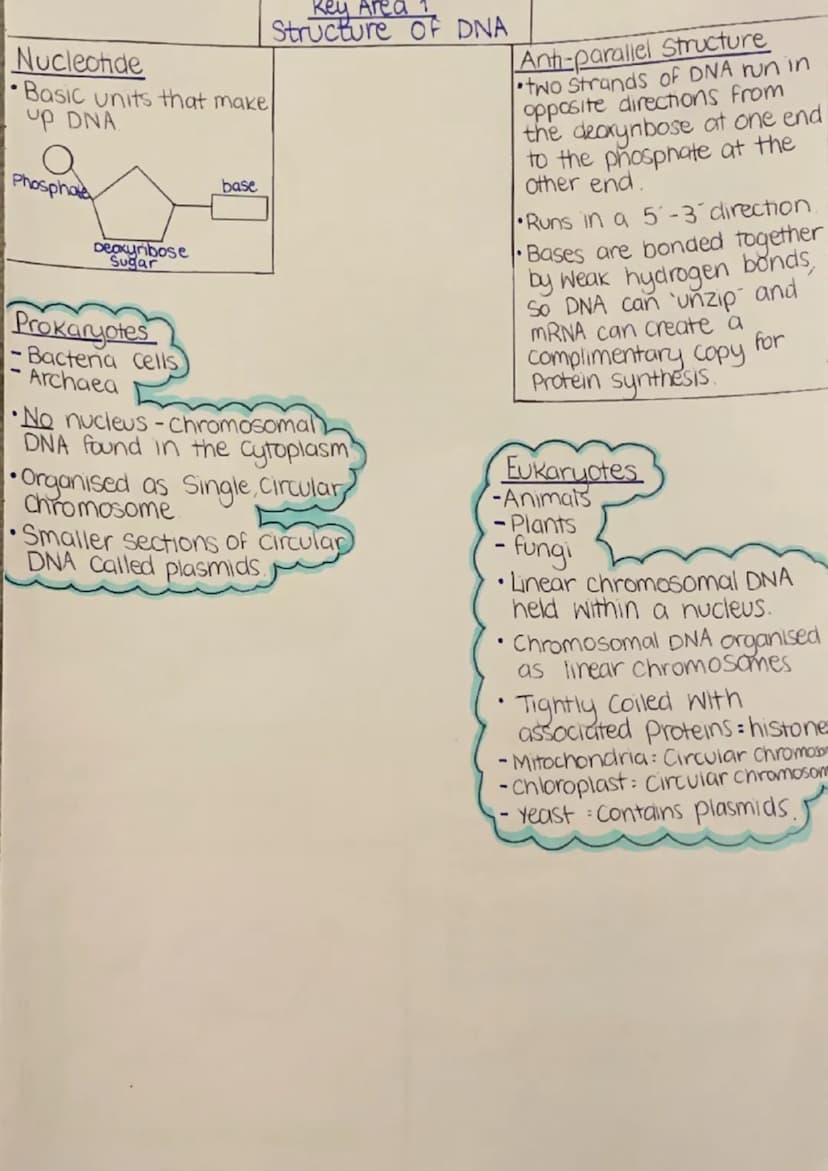 Key Area 1
Structure OF DNA
Nucleotide
• Basic units that make
up DNA
Phosphate
base
Deoxyribose
Sugar
Anti-parallel Structure
• two strands of DNA run in
opposite directions from
the deoxyribose at one end
to the phosphate at the
other end.
• Runs in a 5´-3´ direction
• Bases are bonded together
by weak hydrogen bonds,
so DNA can 'unzip' and
mRNA can create a
complimentary copy for
Protein synthesis.
Prokaryotes
- Bacteria cells
- Archaea
• No nucleus - chromosomal
DNA found in the cytoplasm
• Organised as single, circular
chromosome
• Smaller sections of circular
DNA called plasmids.
Eukaryotes
- Animals
- Plants
- fungi
• Linear chromosomal DNA
held within a nucleus.
• Chromosomal DNA organised
as linear chromosomes
• Tightly coiled with
associated proteins = histone
- Mitochondria: Circular chromoso
- Chloroplast: circular chromosom
- yeast : contains plasmids.